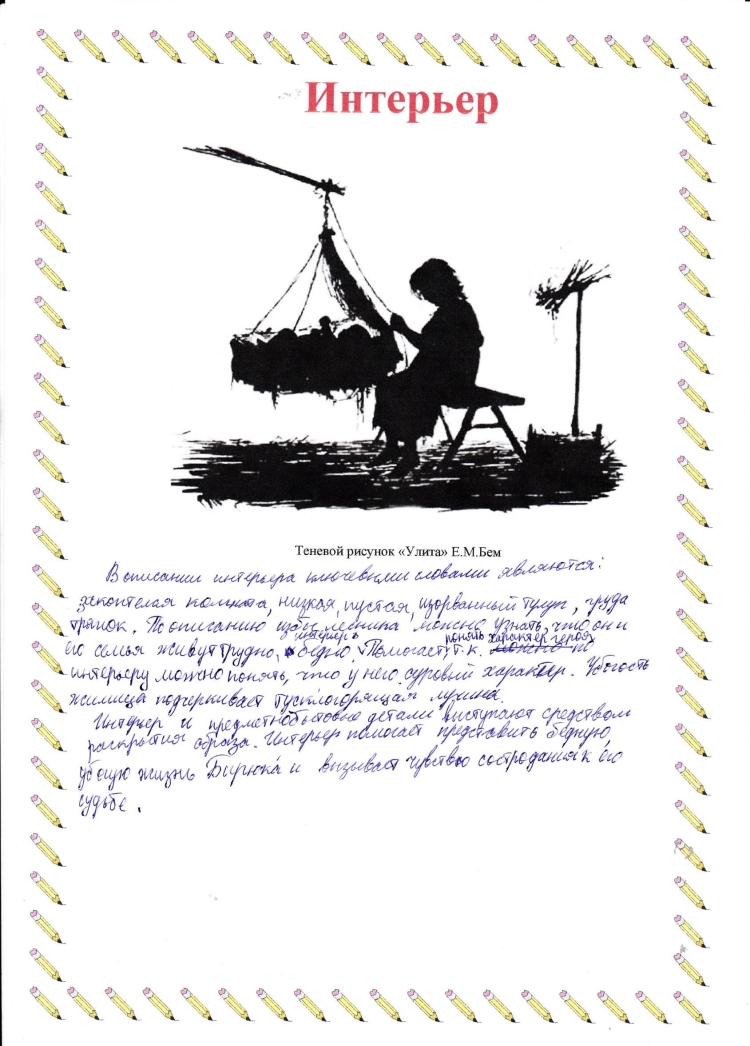 Интерьер
Теневой рисунок «Улита» Е.М.Бем
В описании интерьера ключевыми словами являются:
закоптелая комната, низкая, пустая, изорванный тулуп, груда
тряпок. По описанию избы лесника можно узнать, что он и
интерьер понять характер героя
его семья живут трудно, бедно. Помогает, т.к. можно по
интерьеру можно понять, что у него суровый характер. Убогость
жилища подчеркивает тусклогорящая лучина.
Интерьер и предметнобытовые детали выступают средством
раскрытия образа. Интерьер помогает представить бедную,
убогую жизнь Бирюка и вызывает чувство состродания к его
судьбе.